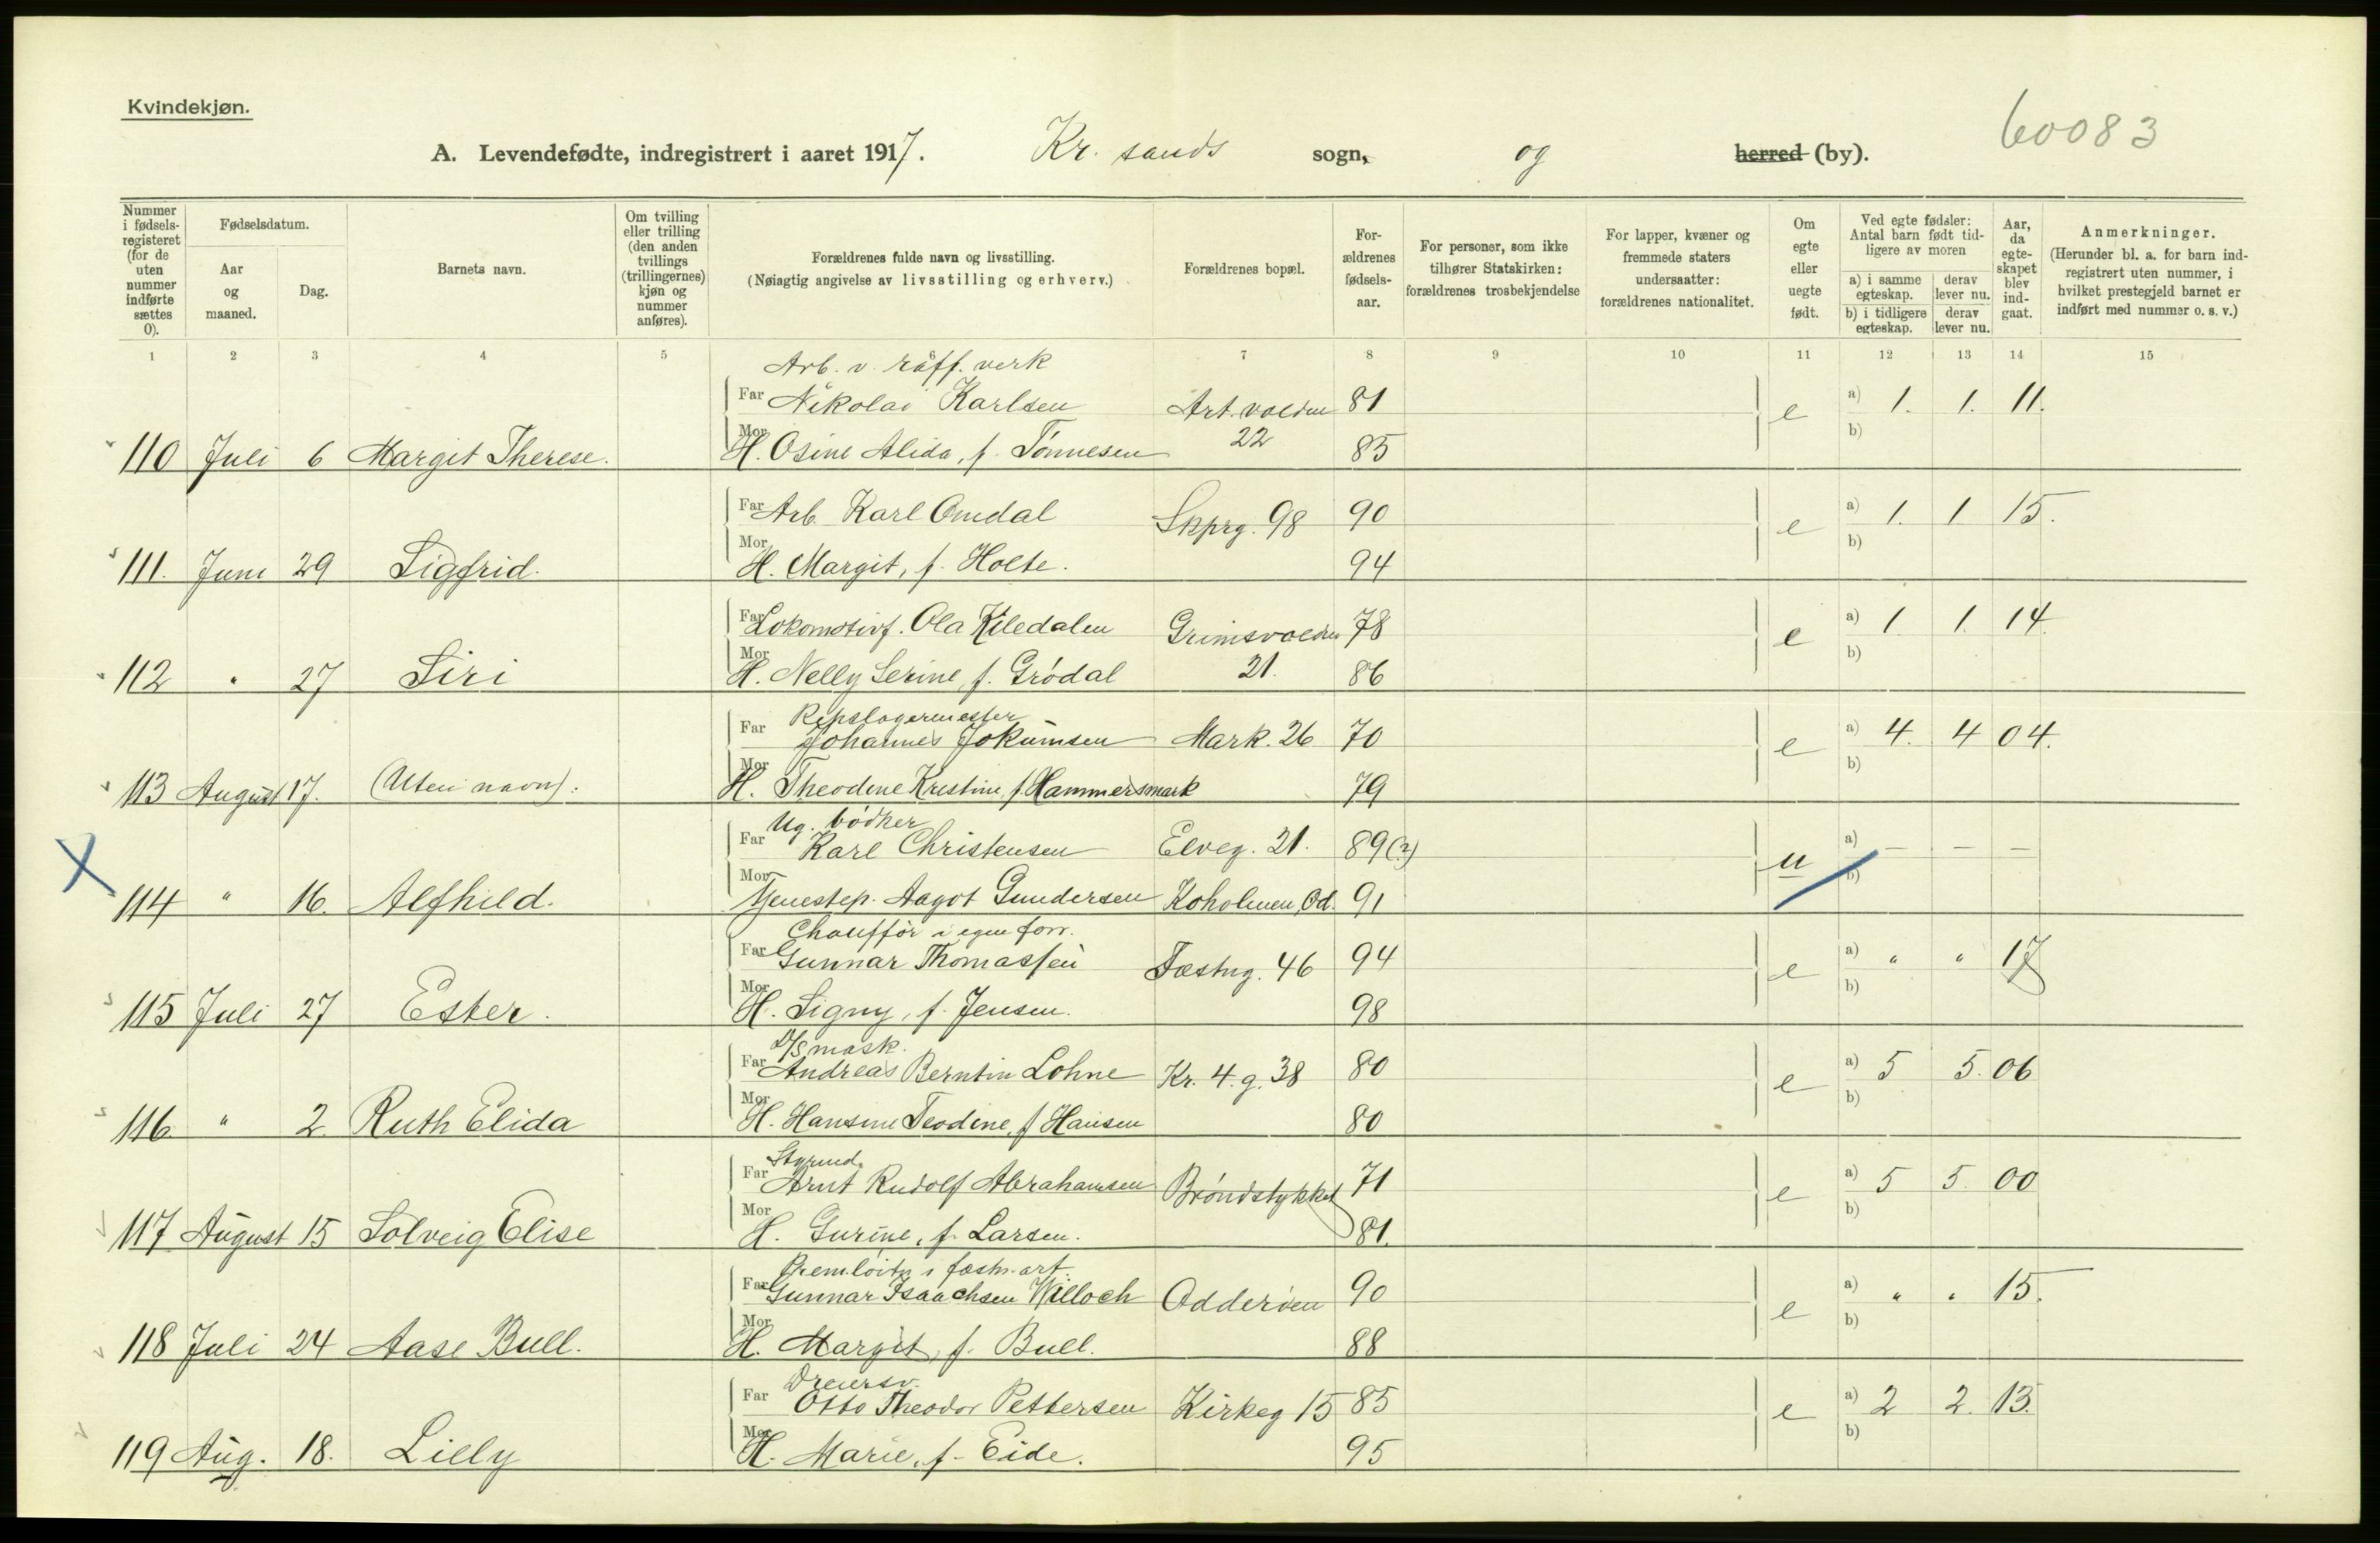 Kvindekjøn.
60083
A. Levendefødte, indregistrert i aaret 1917. Kr. sands sogn, og herred (by).
Nummer i fødsels-registeret (for de uten nummer indførte sættes 0).
Fødselsdatum.
Aar og maaned.
Dag.
Barnets navn.
Om tvilling eller trilling (den anden tvillings (trillingernes) kjøn og nummer anføres).
Forældrenes fulde navn og livsstilling.
(Nøiagtig angivelse av livsstilling og erhverv.)
Forældrenes bopæl.
For-ældrenes fødsels-aar.
For personer, som ikke tilhører Statskirken: forældrenes trosbekjendelse
For lapper, kvæner og fremmede staters undersaatter: forældrenes nationalitet.
Om egte eller uegte født.
Ved egte fødsler: Antal barn født tid-ligere av moren
a) i samme egteskap.
derav lever nu.
b) i tidligere egteskap.
derav lever nu.
Aar, da egte-skapet blev ind-gaat.
Anmerkninger.
(Herunder bl. a. for barn ind-registrert uten nummer, i hvilket prestegjeld barnet er indført med nummer o. s. v.)
1 2 3 4 5 7 8 9 10 11 12 13 14 15
Arb. v. räff. verk
Far Nikolai Karlsen Art. volden 81 e a) 1. 1. 11.
22 b)
110 Juli 6 Margit Therese. Mor H. Osine Alida, f. Tönnesen 85
Far Arb. Karl Omdal Skprg. 98 90 e a) 1. 1 15.
b)
111. Juni 29 Sigfrid. Mor H. Margit, f. Holte. 94
Far Lokomotivf. Ola Kiledalen Grimsvolden 78 e a) 1 1. 14.
b)
112 " 27 Siri Mor H. Nelly Serine, f. Grødal 21. 86
Repslagermester
Far Johannes Jokumsen Mark. 26 70 e a) 4. 4 04.
b)
113 August 17. (Uten navn). Mor H. Theodine Kristine, f. Hammersmark 79
Ug. bødker
Far Karl Christensen Elveg. 21. 89(?) u a) — — —
b)
X 114 " 16. Alfhild. Mor Tjenestep. Aagot Gundersen Koholmen, Od. 91
Chauffør i egen forr.
Far Gunnar Thomassen Fæstng. 46 94 e a) " " 17
b)
115 Juli 27 Ester. Mor H. Signy, f. Jensen. 98
D/S mask.
Far Andreas Berntin Lohne Kr. 4. g. 38 80 e a) 5 5. 06
b)
116. " 2. Ruth Elida Mor H. Hansine Teodine, f. Hansen 80
Styrmd.
Far Arnt Rudolf Abrahamsen Brøndstykket 71 e a) 5 5. 00
b)
117 August 15 Solveig Elise Mor H. Gurine, f. Larsen. 81.
Premløitn. i fæstn. art.
Far Gunnar Isaachsen Willoch Odderøen 90 e a) " " 15.
b)
118 Juli 24 Aase Bull. Mor H. Margit, f. Bull. 88
Dreiersv.
Far Otto Theodor Pettersen Kirkeg 15 85 e a) 2 2. 13.
b)
119 Aug. 18. Lilly Mor H. Marie, f. Eide. 95